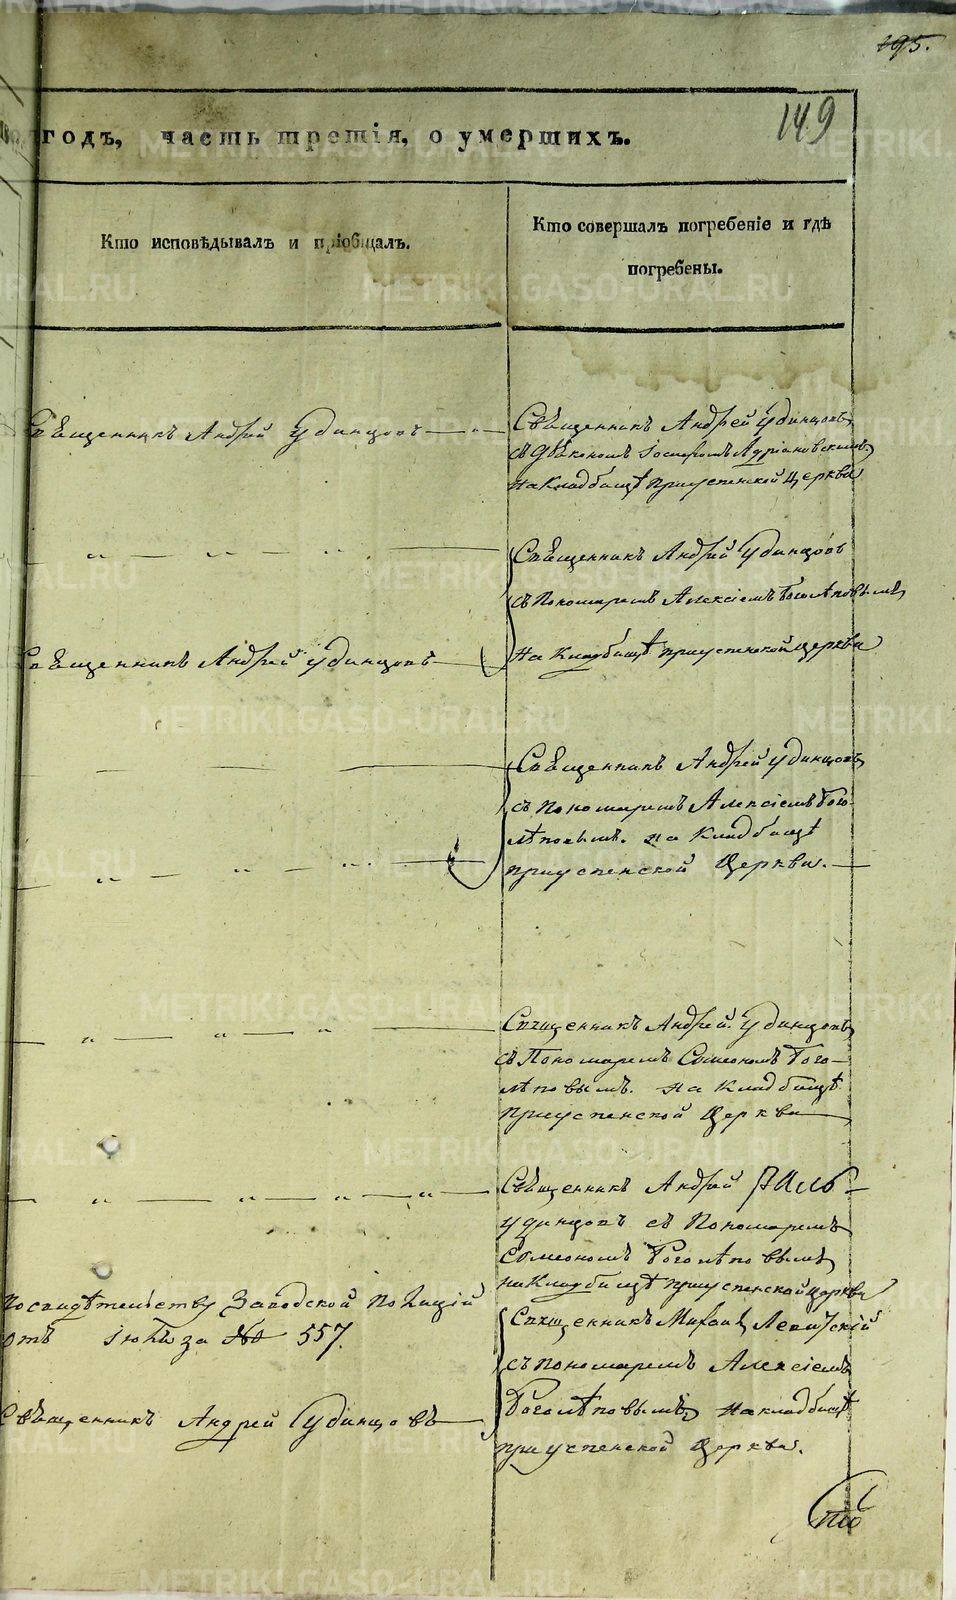 195.
149
годъ, часть третія, о умершихъ.
Кто исповѣдывалъ и пріобщалъ.
Кто совершалъ погребеніе и гдѣ
погребены.
Священникъ Андрей Удинцовъ
Священникъ Андрей Удинцовъ
съ Діякономъ Іосифомъ Адріановскимъ
на Кладбищѣ приуспенской Церкви
Священникъ Андрей Удинцовъ
съ Пономаремъ Алексіемъ Боголѣповымъ
Священникъ Андрей Удинцовъ
на Кладбищѣ приуспенской церкви
Священникъ Андрей Удинцовъ
съ Пономаремъ Алексіемъ Бого-
лѣповымъ. на Кладбищѣ
приуспенской Церкви.
Священникъ Андрей Удинцовъ
съ Пономаремъ Симеономъ Бого-
лѣповымъ. на Кладбищѣ
приуспенской Церкви
Священникъ Андрей
Удинцовъ съ Пономаремъ
Симеономъ Боголѣповымъ
на Кладбищѣ приуспенской церкви
По свидѣтельству Заводской Полиціи
отъ Іюля за № 557.
Священникъ Михаилъ Левитскій
съ пономаремъ Алексіемъ
Священникъ Андрей Удинцовъ
Боголѣповымъ на кладбищѣ
приуспенской Церкви.
METRIKI.GASO-URAL.RU